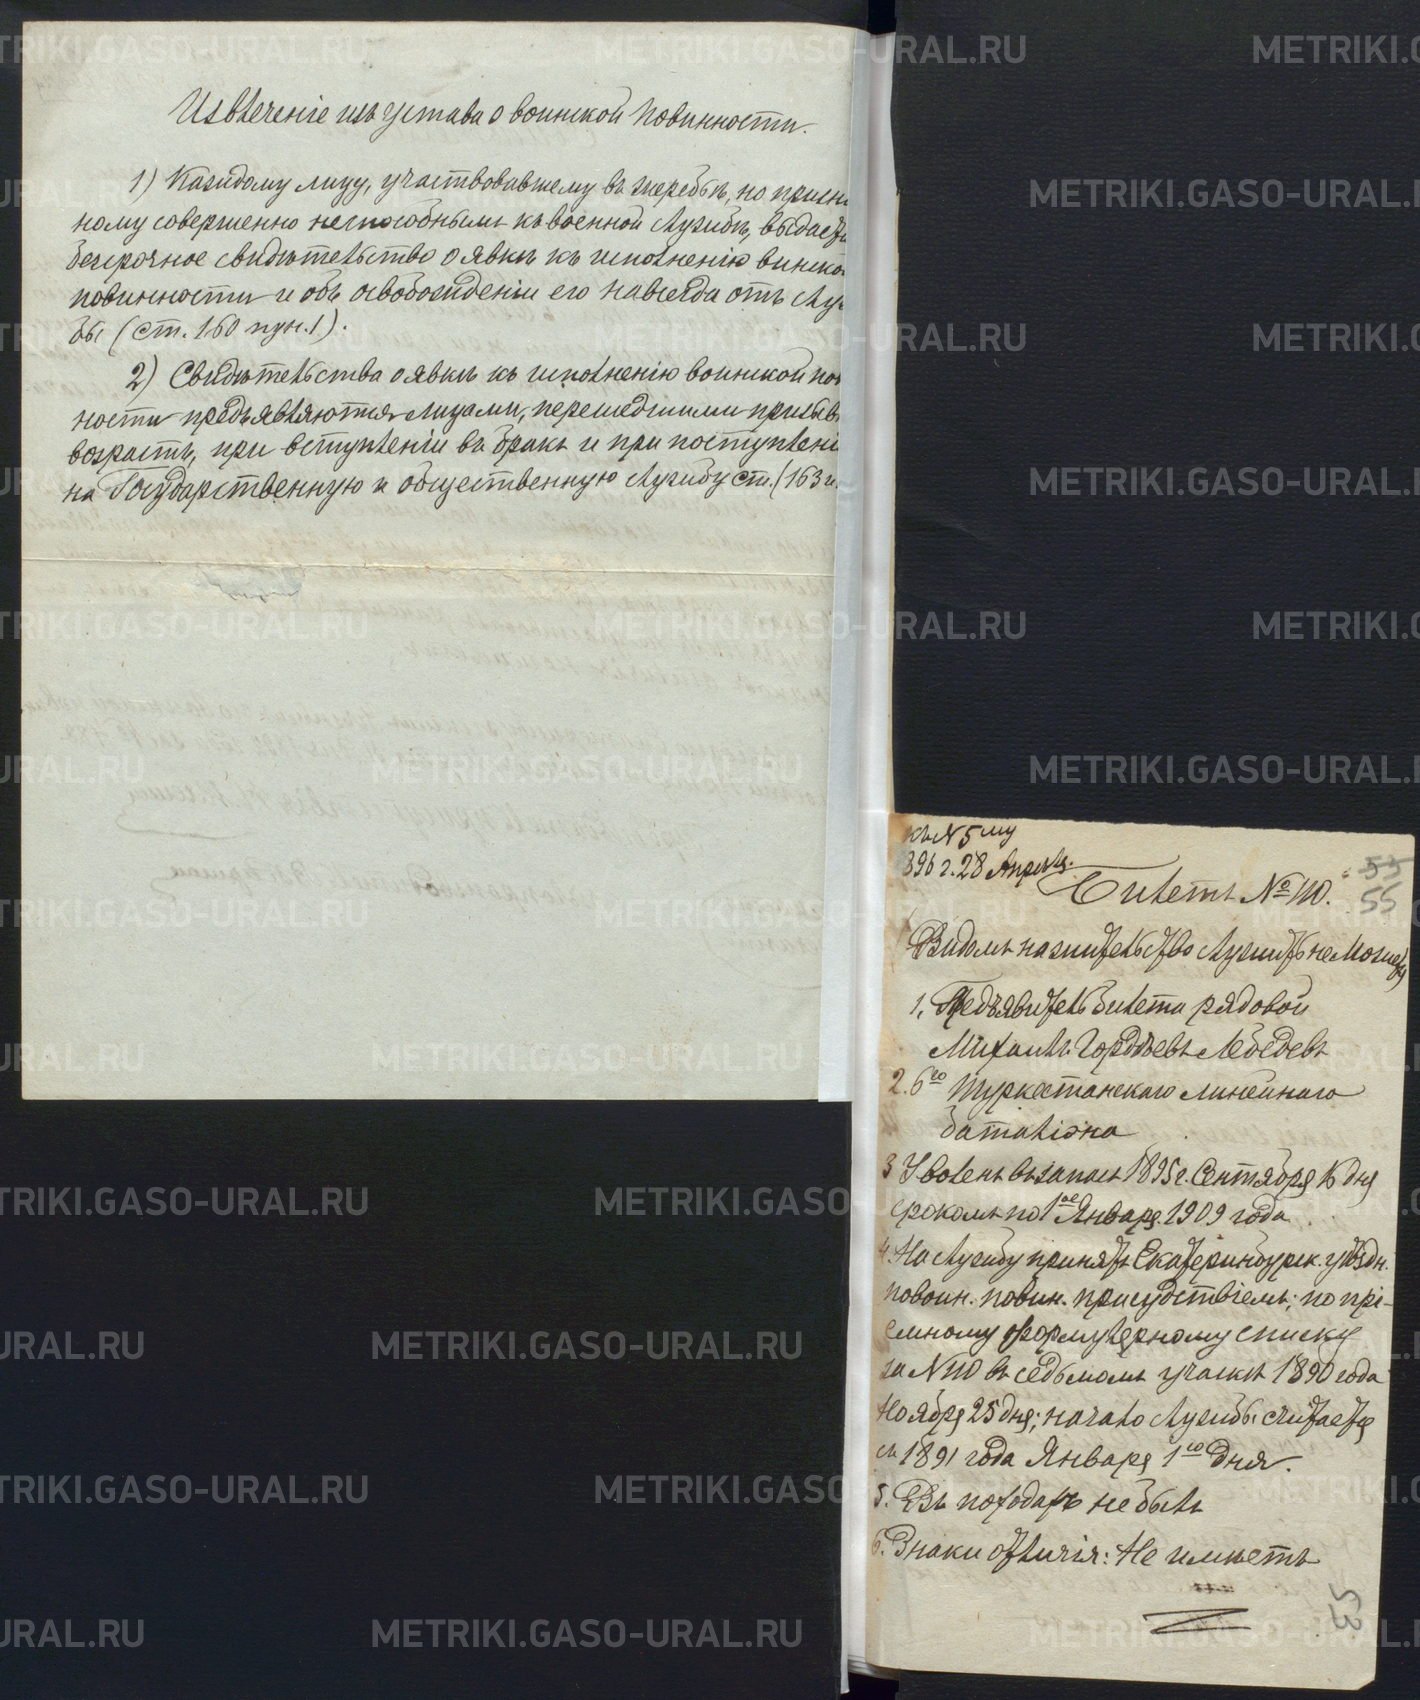 Извлеченіе изъ Устава о воинской повинности.
1) Каждому лицу, участвовавшему въ жеребьѣ, но призна
ному совершенно неспособнымъ къ военной службѣ, выдается
безсрочное свидѣтельство о явкѣ къ исполненію воинско
повинности и объ освобожденіи его навсегда отъ служ
бы (ст. 160 пун. 1).
2) Свидѣтельства о явкѣ къ исполненію воинской пов
ности предъявляются лицами, перешедшими призыв
возрастъ, при вступленіи въ бракъ и при поступлені
на Государственную и общественную службу ст. (163 и.
къ № 5му
896 г. 28 Апрѣля.
Билетъ № 110.
53
55
Видомъ на жительство служить не можетъ
1. Предъявитель билета рядовой
Михаилъ Гордѣевъ Лебедевъ
2. 6го Туркестанскаго линейнаго
баталіона
3 Уволенъ въ запасъ 1895 г. Сентября 16 дня
срокомъ по 1ое Января 1909 года
4. На службу принятъ Екатеринбурск. уѣздн.
по воин. повин. присудствіемъ; по прі-
емному формулярному списку
за № 110 въ седьмомъ участкѣ 1890 года
Ноября 25 дня; начало службы считается
съ 1891 года Января 1го дня.
5. Въ походахъ не былъ
6. Знаки отличія: Не имѣетъ
53
METRIKI.GASO-URAL.RU